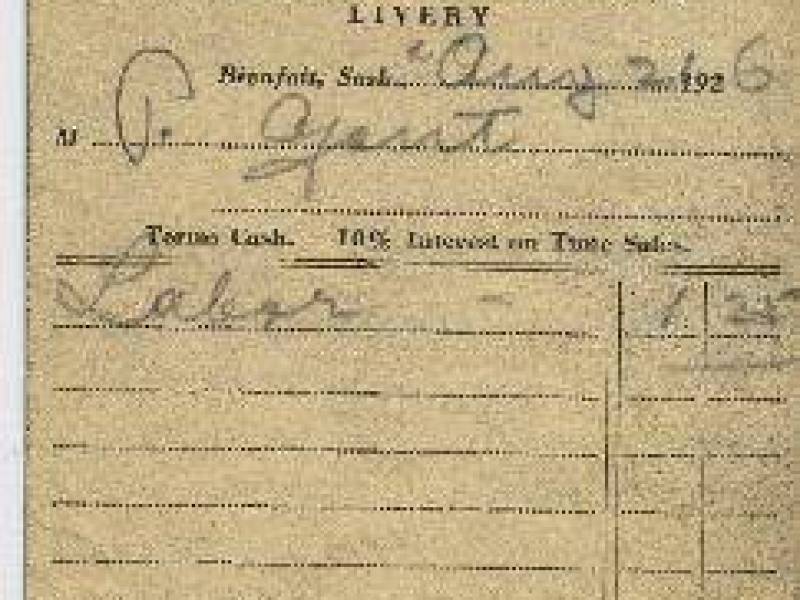 LIVERY
Bienfait, Sask. Aug 26 1926
M P. Gent
Terms Cash. 10% Interest on Time Sales.
Labor - 1 25